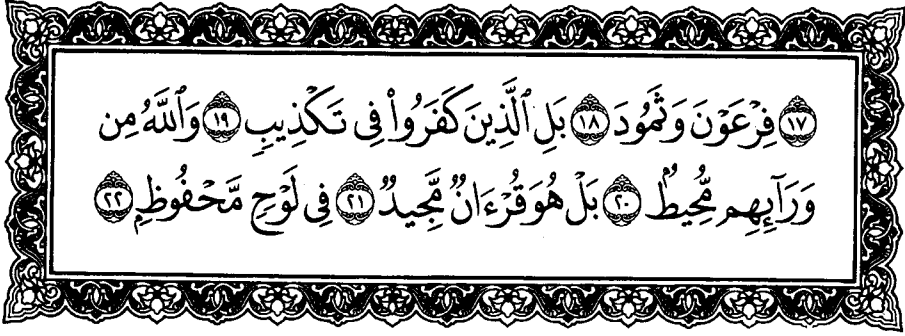 ۝١٧ فِرْعَوْنَ وَثَمُودَ ۝١٨ بَلِ ٱلَّذِينَ كَفَرُوا۟ فِى تَكْذِيبٍ ۝١٩ وَٱللَّهُ مِن
وَرَآئِهِم مُّحِيطٌۢ ۝٢٠ بَلْ هُوَ قُرْءَانٌ مَّجِيدٌ ۝٢١ فِى لَوْحٍ مَّحْفُوظٍۭ ۝٢٢